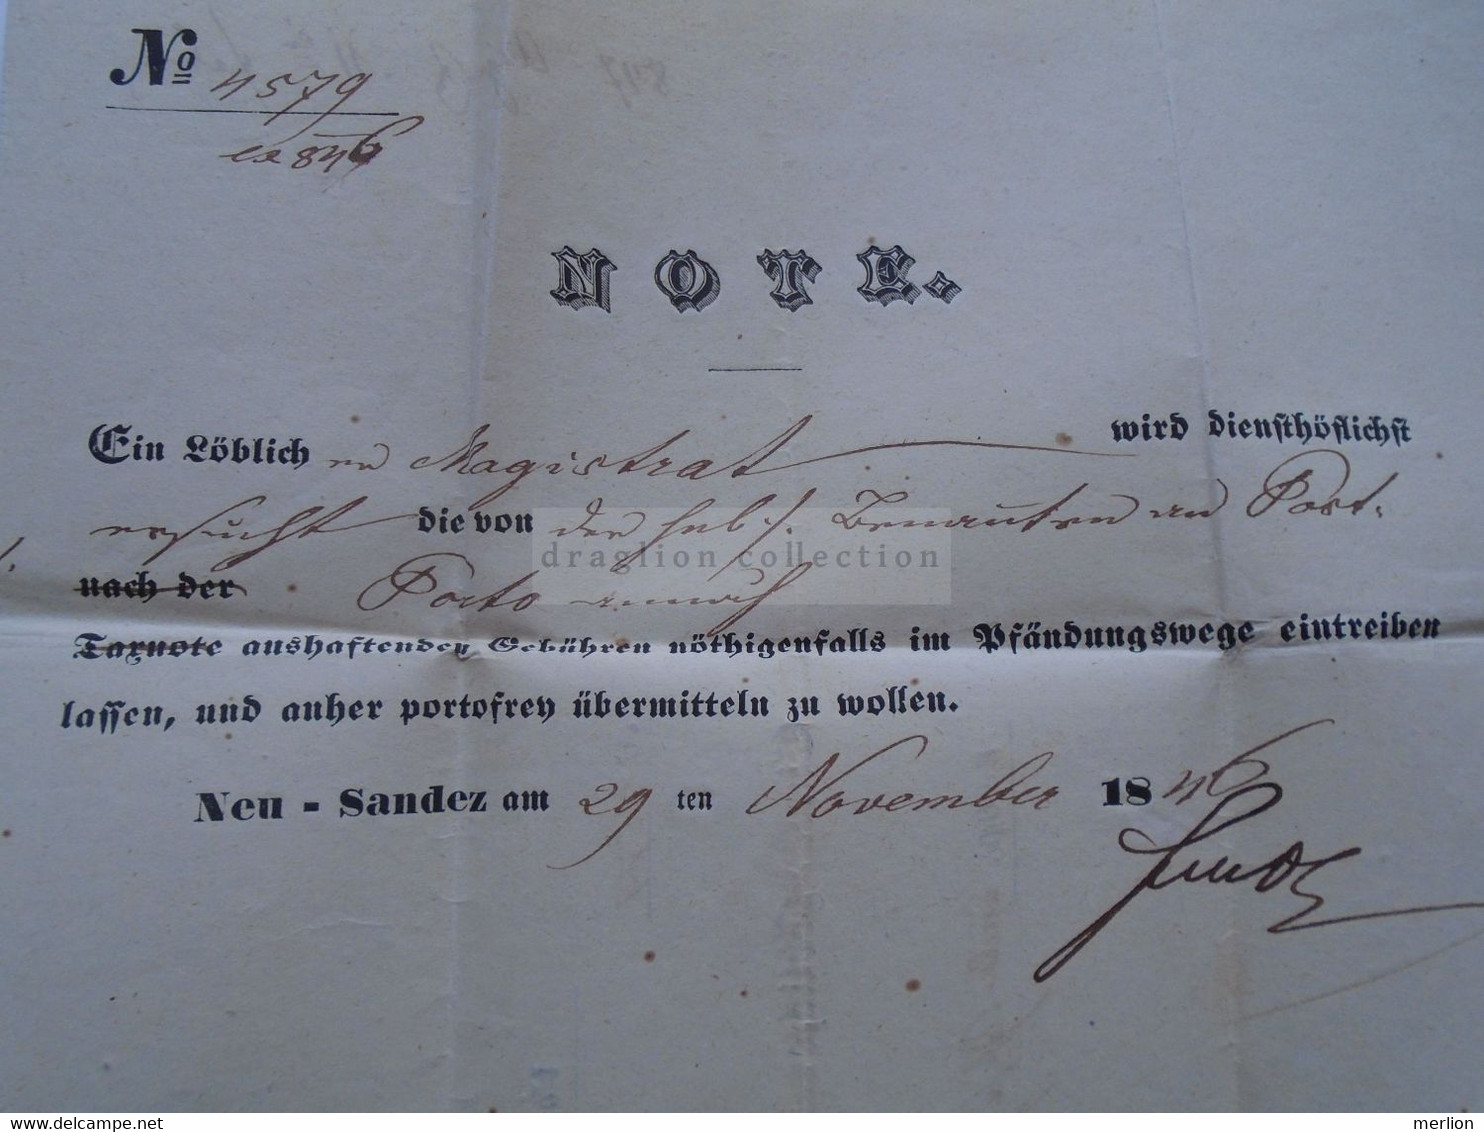 No 4579
ex 846
NOTE.
Ein Löblich en Magistrat wird diensthöflichst
ersucht die von den sub ·/. Benannten an Post-
nach der Porto
Taxnote aushaftenden Gebühren nöthigenfalls im Pfändungswege eintreiben
lassen, und anher portofrey übermitteln zu wollen.
Neu - Sandez am 29 ten November 1846
draglion collection
merlion